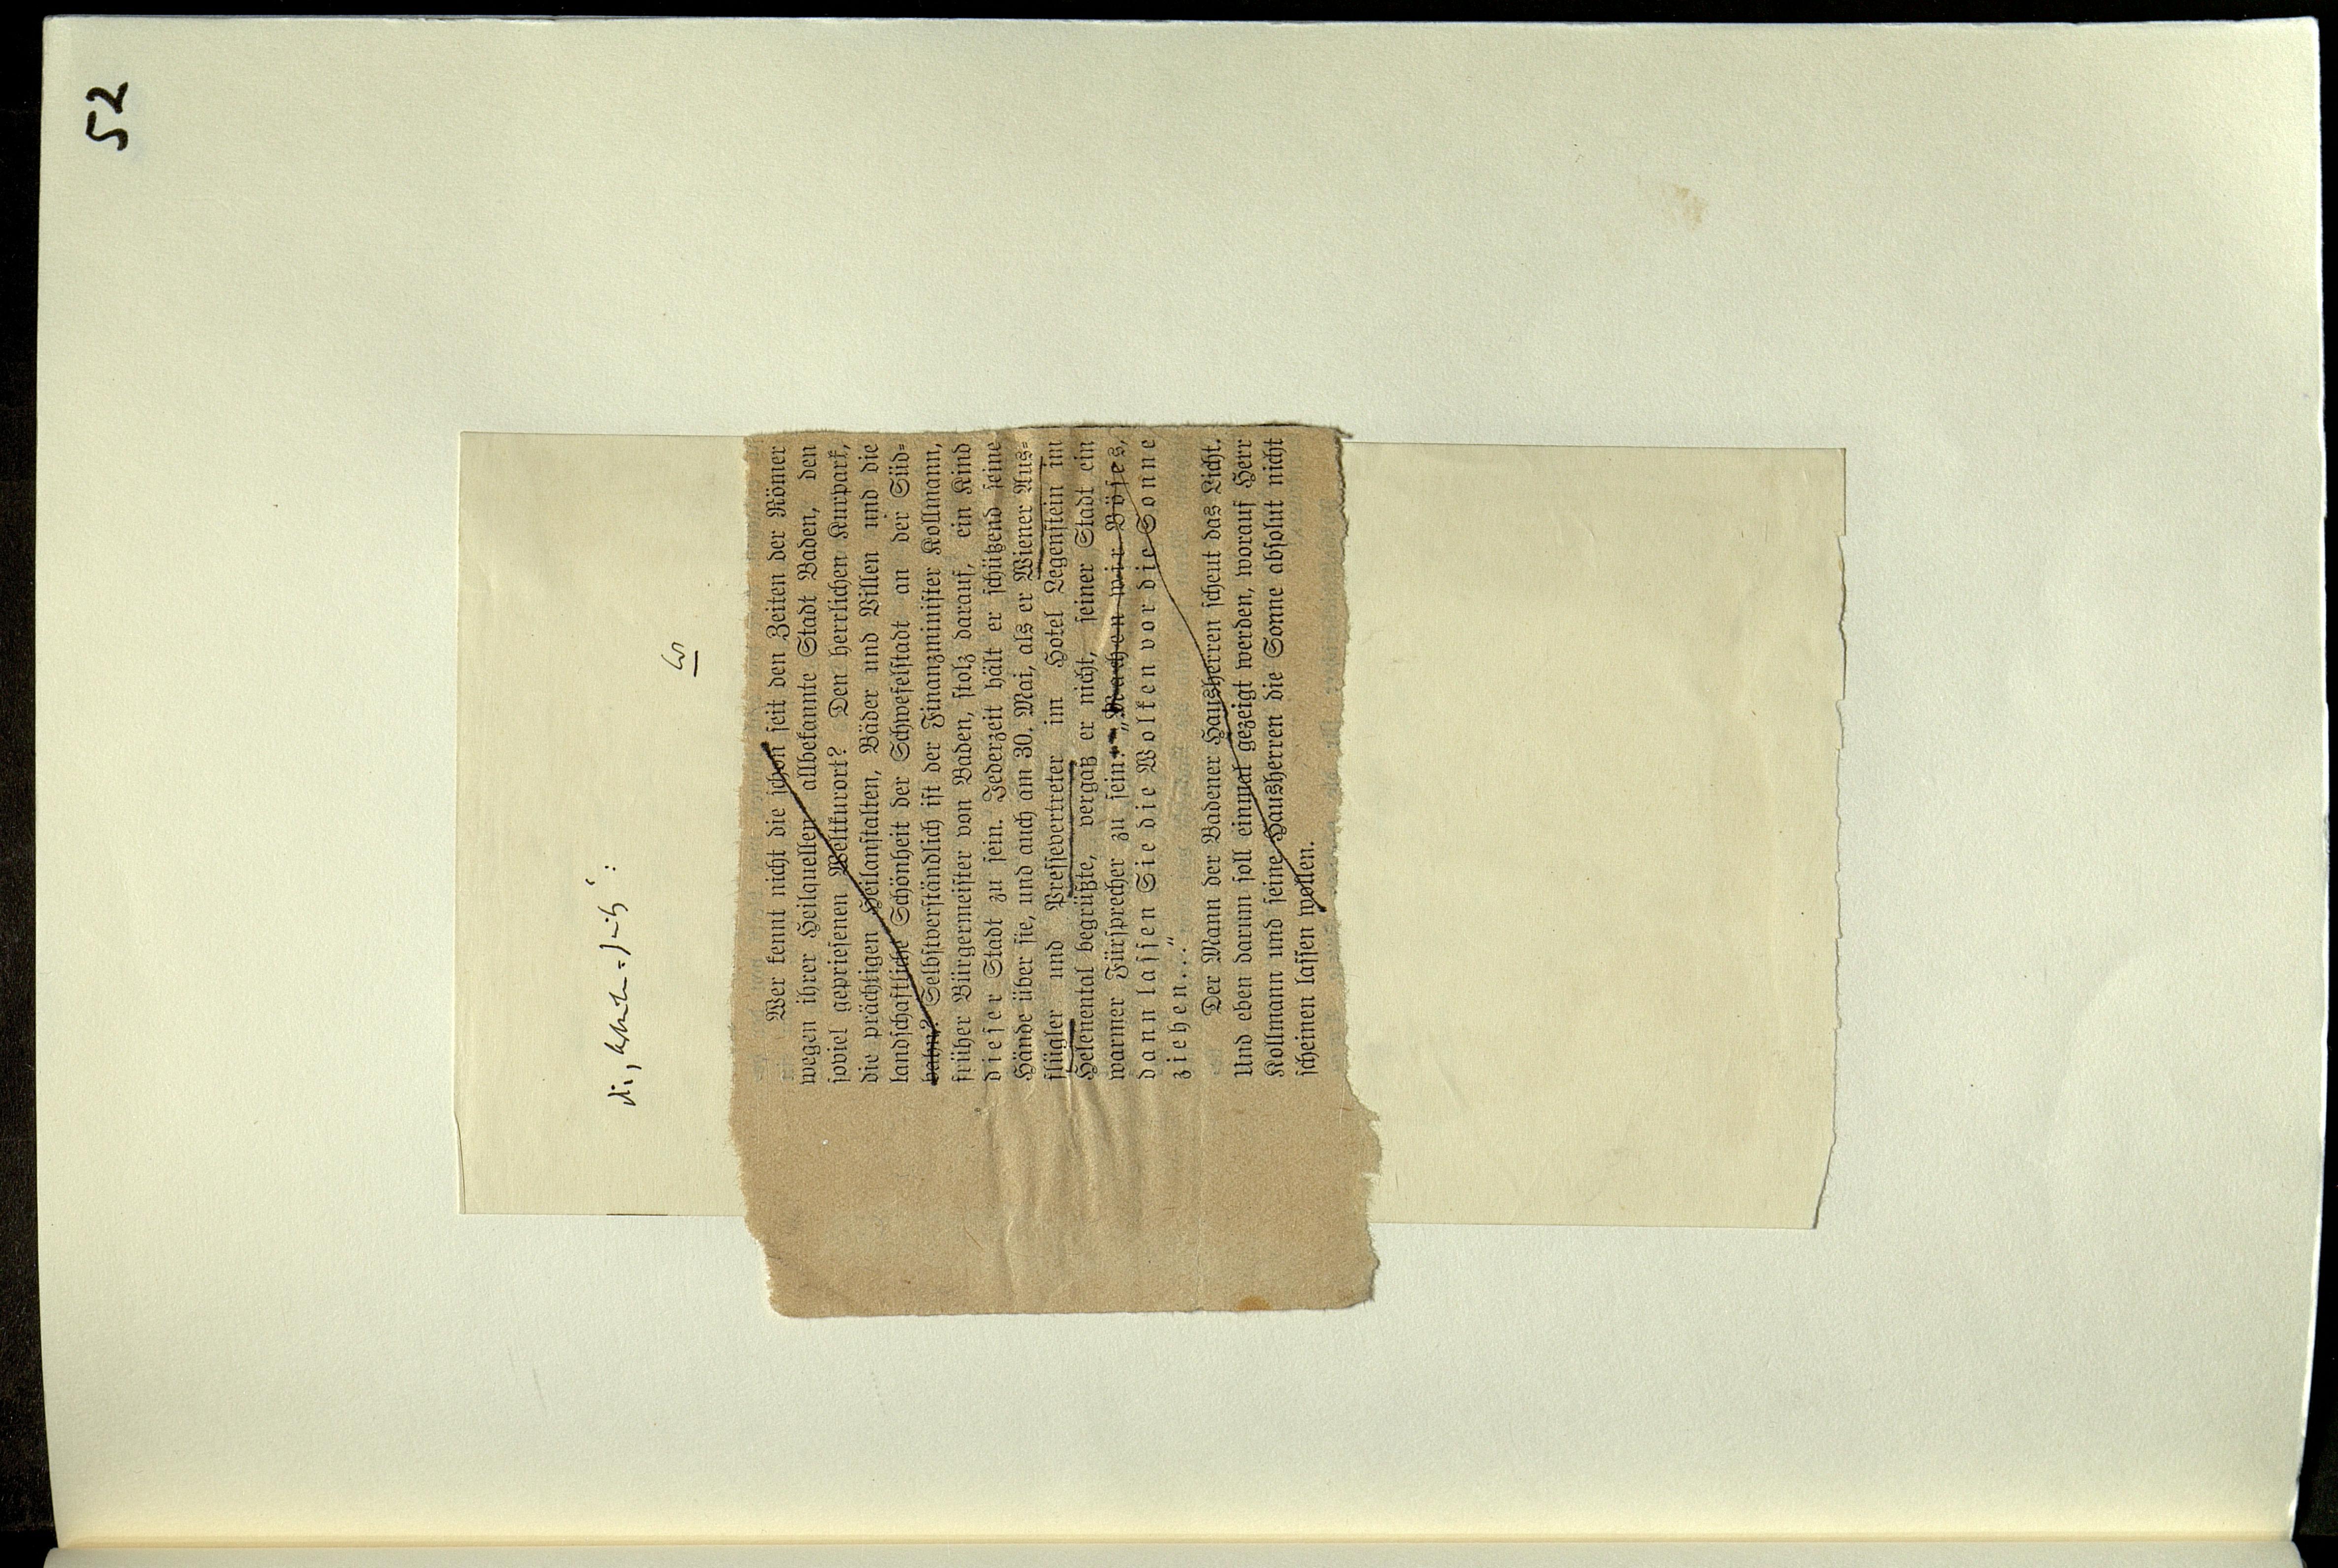 52
Wer kennt nicht die schon seit den Zeiten der Römer
wegen ihrer Heilquellen allbekannte Stadt Baden, den
soviel gepriesenen Weltkurort? Den herrlichen Kurpark,
die prächtigen Heilanstalten, Bäder und Villen und die
landschaftliche Schönheit der Schwefelstadt an der Süd-
bahn? Selbstverständlich ist der Finanzminister Kollmann,
früher Bürgermeister von Baden, stolz darauf, ein Kind
dieser Stadt zu sein. Jederzeit hält er schützend seine
Hände über sie, und auch am 30. Mai, als er Wiener Aus-
flügler und Pressevertreter im Hotel Legenstein im
Helenental begrüßte, vergaß er nicht, seiner Stadt ein
warmer Fürsprecher zu sein: „Machen wir Böses,
dann lassen Sie die Wolken vor die Sonne
ziehen...“
Der Mann der Badener Hausherren scheut das Licht.
Und eben darum soll einmal gezeigt werden, worauf Herr
Kollmann und seine Hausherren die Sonne absolut nicht
scheinen lassen wollen.